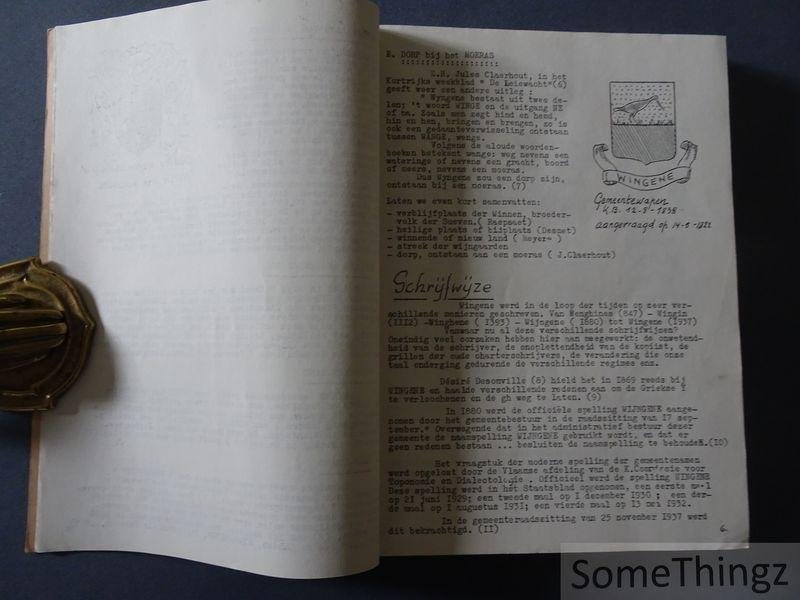 E. DORP bij het MOERAS
Z.H. Jules Claerhout, in het
Kortrijks weekblad " De Leiewacht"(6)
geeft weer een andere uitleg :
" Wyngene bestaat uit twee de-
len; 't woord WINGE en de uitgang NE
of na. Zoals men zegt hind en hend,
hin en hen, bringen en brengen, zo is
ook een gedaanteverwisseling ontstaan
tussen WANGE, wenge.
Volgens de aloude woorden-
boeken betekent wange: weg nevens een
wateringe of nevens een gracht, boord
of oever, nevens een moeras.
Dus Wyngene zou een dorp zijn,
ontstaan bij een moeras. (7)
WINGENE
Gemeentewapen
K.B. 12-8-1838
aangevraagd op 14-6-
Laten we even kort samenvatten:
- verblijfplaats der Winnen, broeder-
volk der Sueven.( Raepsaet)
- heilige plaats of bijplaats (Desmet)
- winnende of nieuw land ( Meyer )
- streek der wijngaarden
- dorp, ontstaan aan een moeras ( J.Claerhout)
Schrijfwijze
Wingene werd in de loop der tijden op zeer ver-
schillende manieren geschreven. Van Wenghinas (847) - Wingin
(III2) -Winghene ( I393) - Wijngene ( I880) tot Wingene (I937)
Vanwaar nu al deze verschillende schrijfwijzen?
Oneindig veel oorzaken hebben hier aan meegewerkt: de onwetend-
heid van de schrijver, de onoplettendheid van de kopiist, de
grillen der oude charterschrijvers, de verandering die onze
taal onderging gedurende de verschillende regimes enz.
Désiré Desonville (8) hield het in I869 reeds bij
WINGENE en haalde verschillende redenen aan om de Griekse Y
te verloochenen en de gh weg te laten. (9)
In I880 werd de officiële spelling WIJNGENE aange-
nomen door het gemeentebestuur in de raadszitting van I7 sep-
tember." Overwegende dat in het administratief bestuur dezer
gemeente de naamspelling WIJNGENE gebruikt wordt, en dat er
geen redenen bestaan ... besluiten de naamspelling te behouden.(I0)
Het vraagstuk der moderne spelling der gemeentenamen
werd opgelost door de Vlaamse afdeling van de K.Commissie voor
Toponomie en Dialectologie . Officieel werd de spelling WINGENE
Deze spelling werd in het Staatsblad opgenomen, een eerste maal
op 2I juni I929; een tweede maal op I december I930 ; een der-
de maal op I augustus I93I; een vierde maal op I3 mei I932.
In de gemeenteraadszitting van 25 november I937 werd
dit bekrachtigd. (II)
6.
SomeThingz